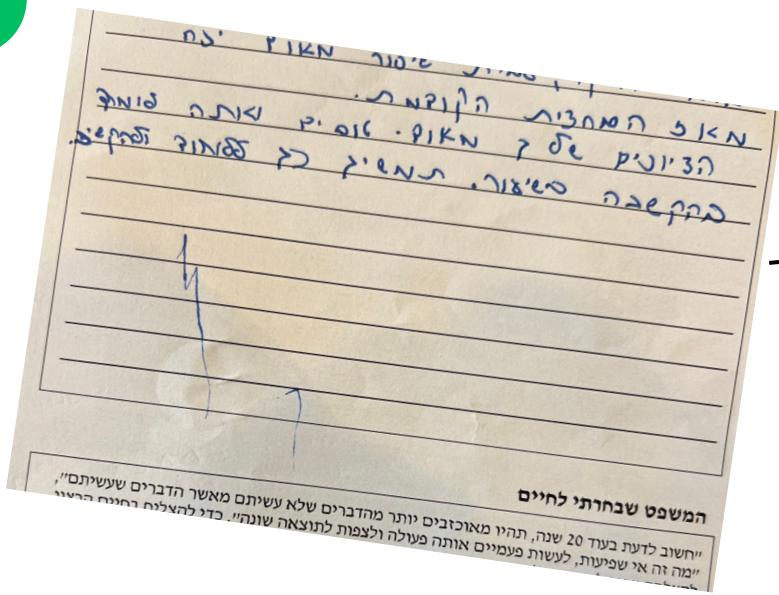 שיפור מאוד יפה
מאז המחצית הקודמת.
הציונים שלך מאוד טובים ואתה לומד
בהקשבה בשיעור. תמשיך כך ללמוד ולהקשיב.
המשפט שבחרתי לחיים
"חשוב לדעת בעוד 20 שנה, תהיו מאוכזבים יותר מהדברים שלא עשיתם מאשר הדברים שעשיתם",
"מה זה אי שפיעות, לעשות פעמיים אותה פעולה ולצפות לתוצאה שונה", כדי להצליח בחיים הרצון